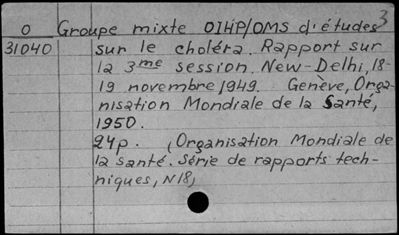 3
O Groupe mixte OIHP/OMS d'études
31040 sur le choléra. Rapport sur
la 3me session. New-Delhi, 18-
19 novembre 1949. Genève, Orga-
nisation Mondiale de la Santé,
1950.
24p. (Organisation Mondiale de
la santé. Série de rapports tech-
niques, N18)